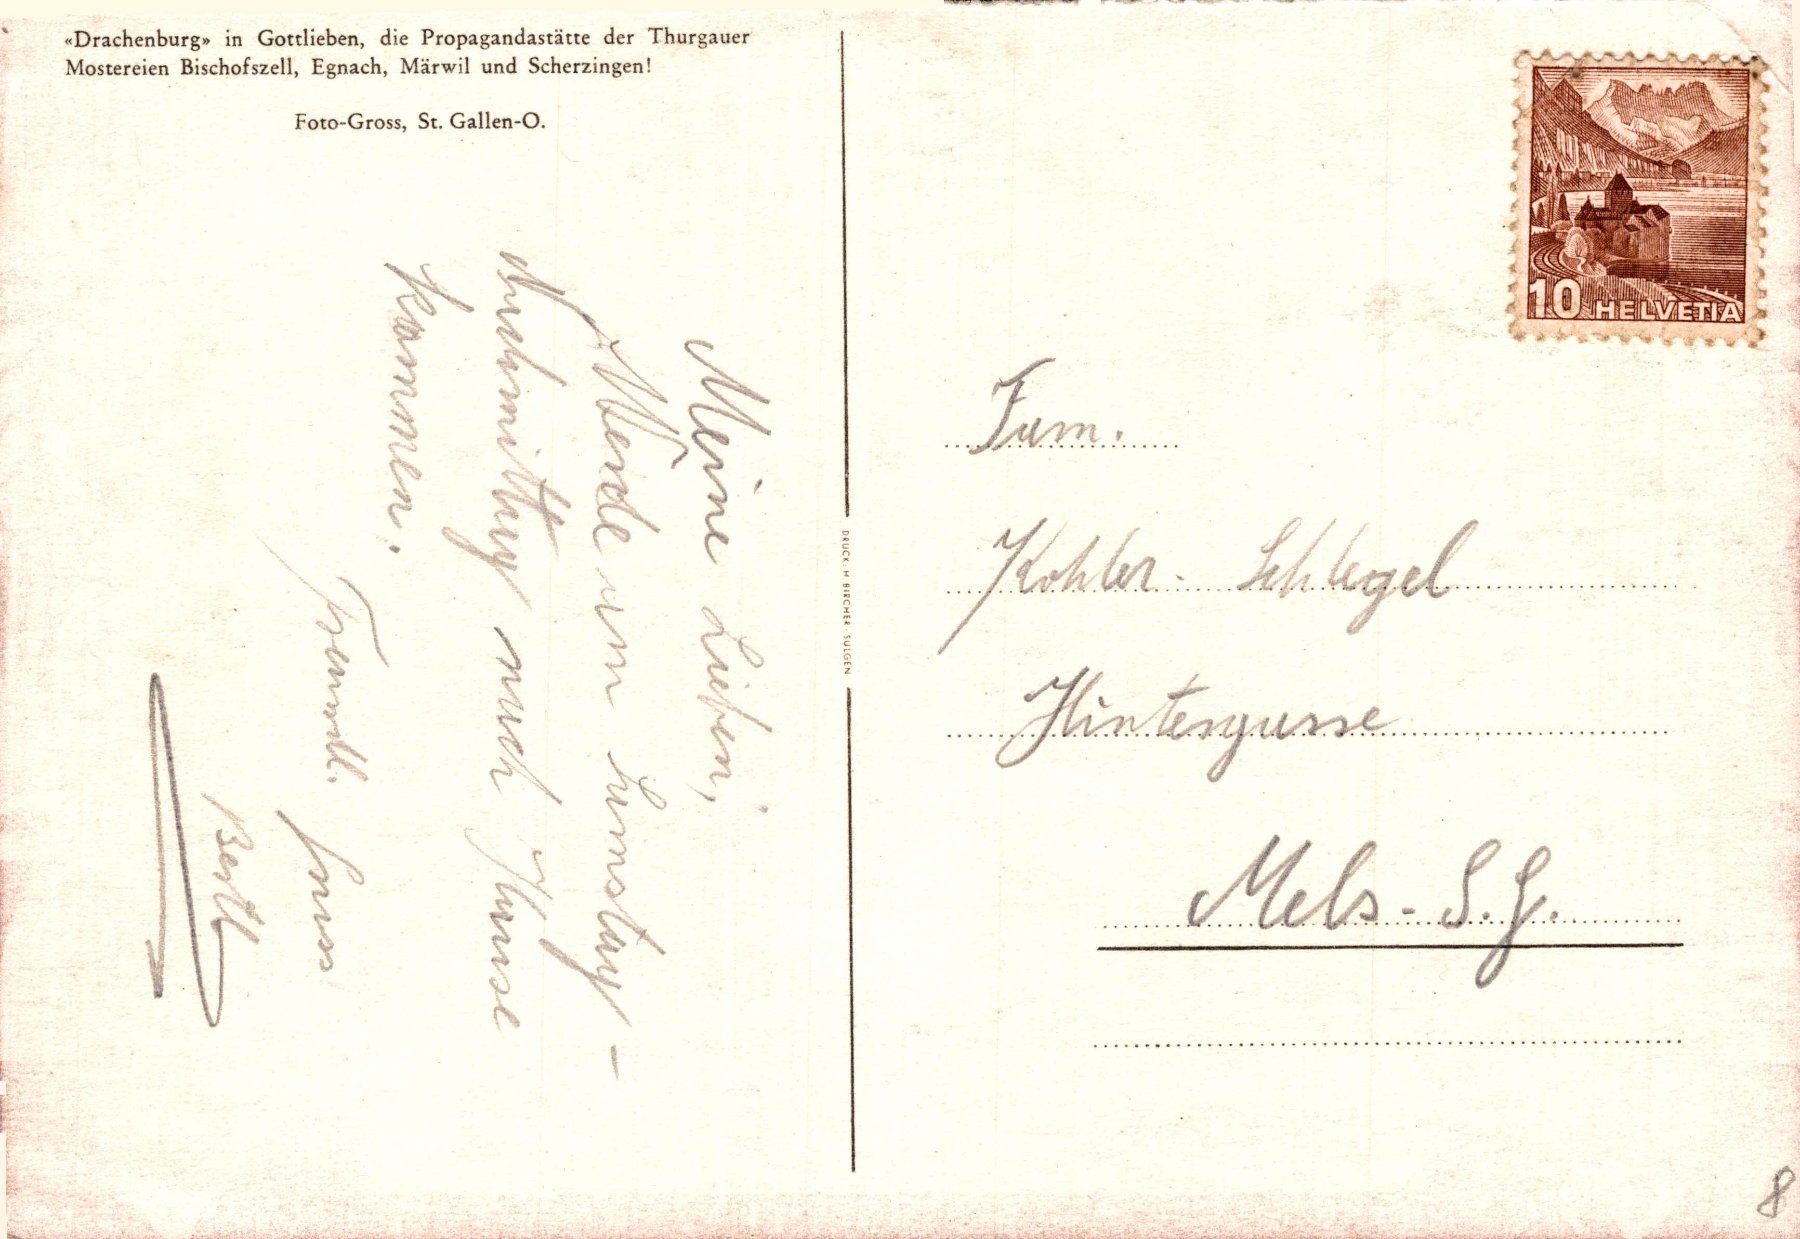 «Drachenburg» in Gottlieben, die Propagandastätte der Thurgauer
Mostereien Bischofszell, Egnach, Märwil und Scherzingen!
Foto-Gross, St. Gallen-O.
Meine Lieben,
Werde am Samstag-
Nachmittag nach Hause
kommen.
Freundl. Gruss
Bertl
DRUCK H BIRCHER SULGEN
10 HELVETIA
Fam.
Kohler-Schlegel
Hintergasse
Mels-S.G.
8